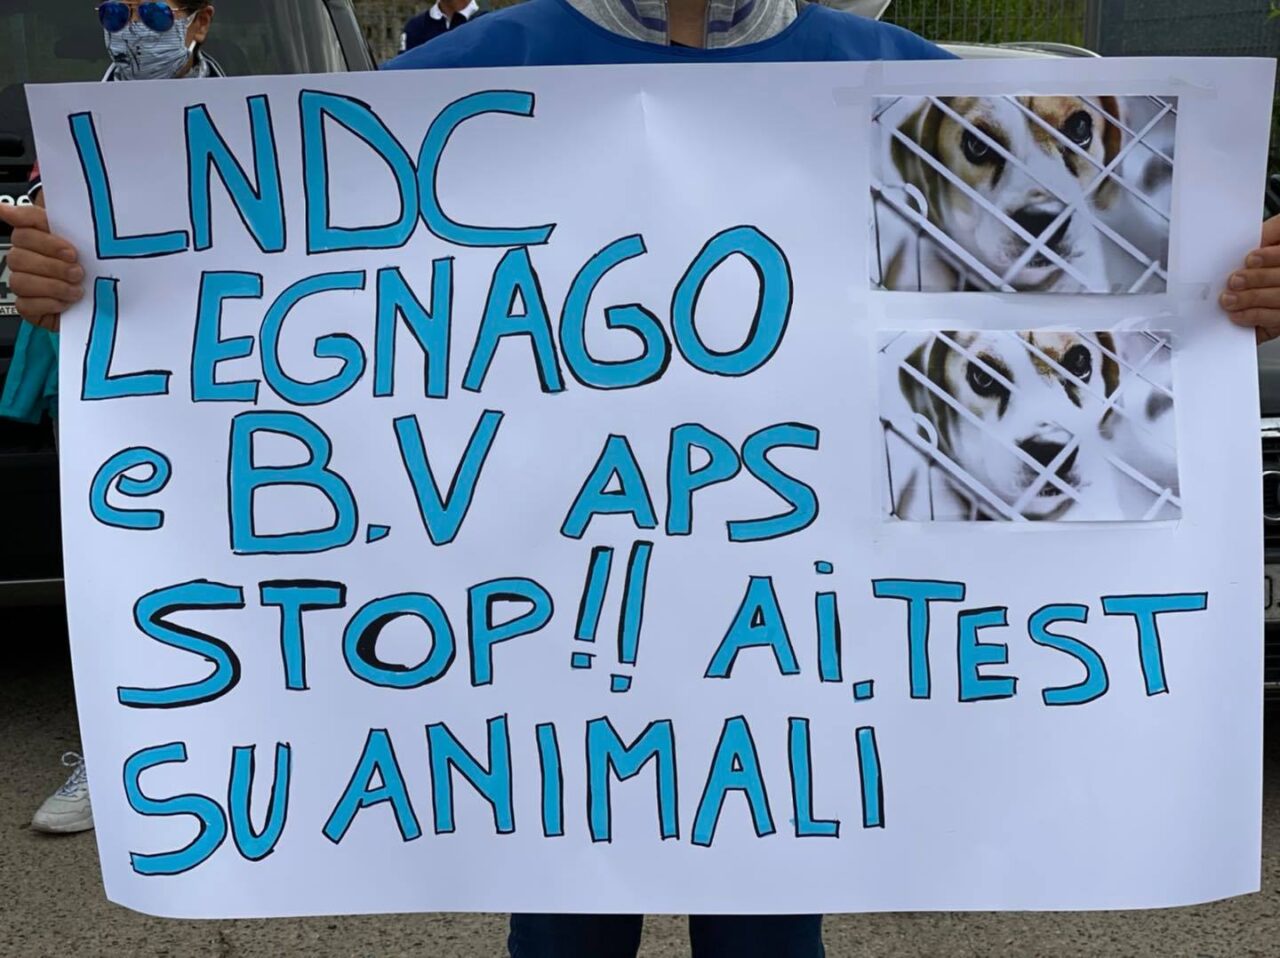 LNDC
LEGNAGO
e B.V APS
STOP!! Ai.TEST
SU ANIMALI